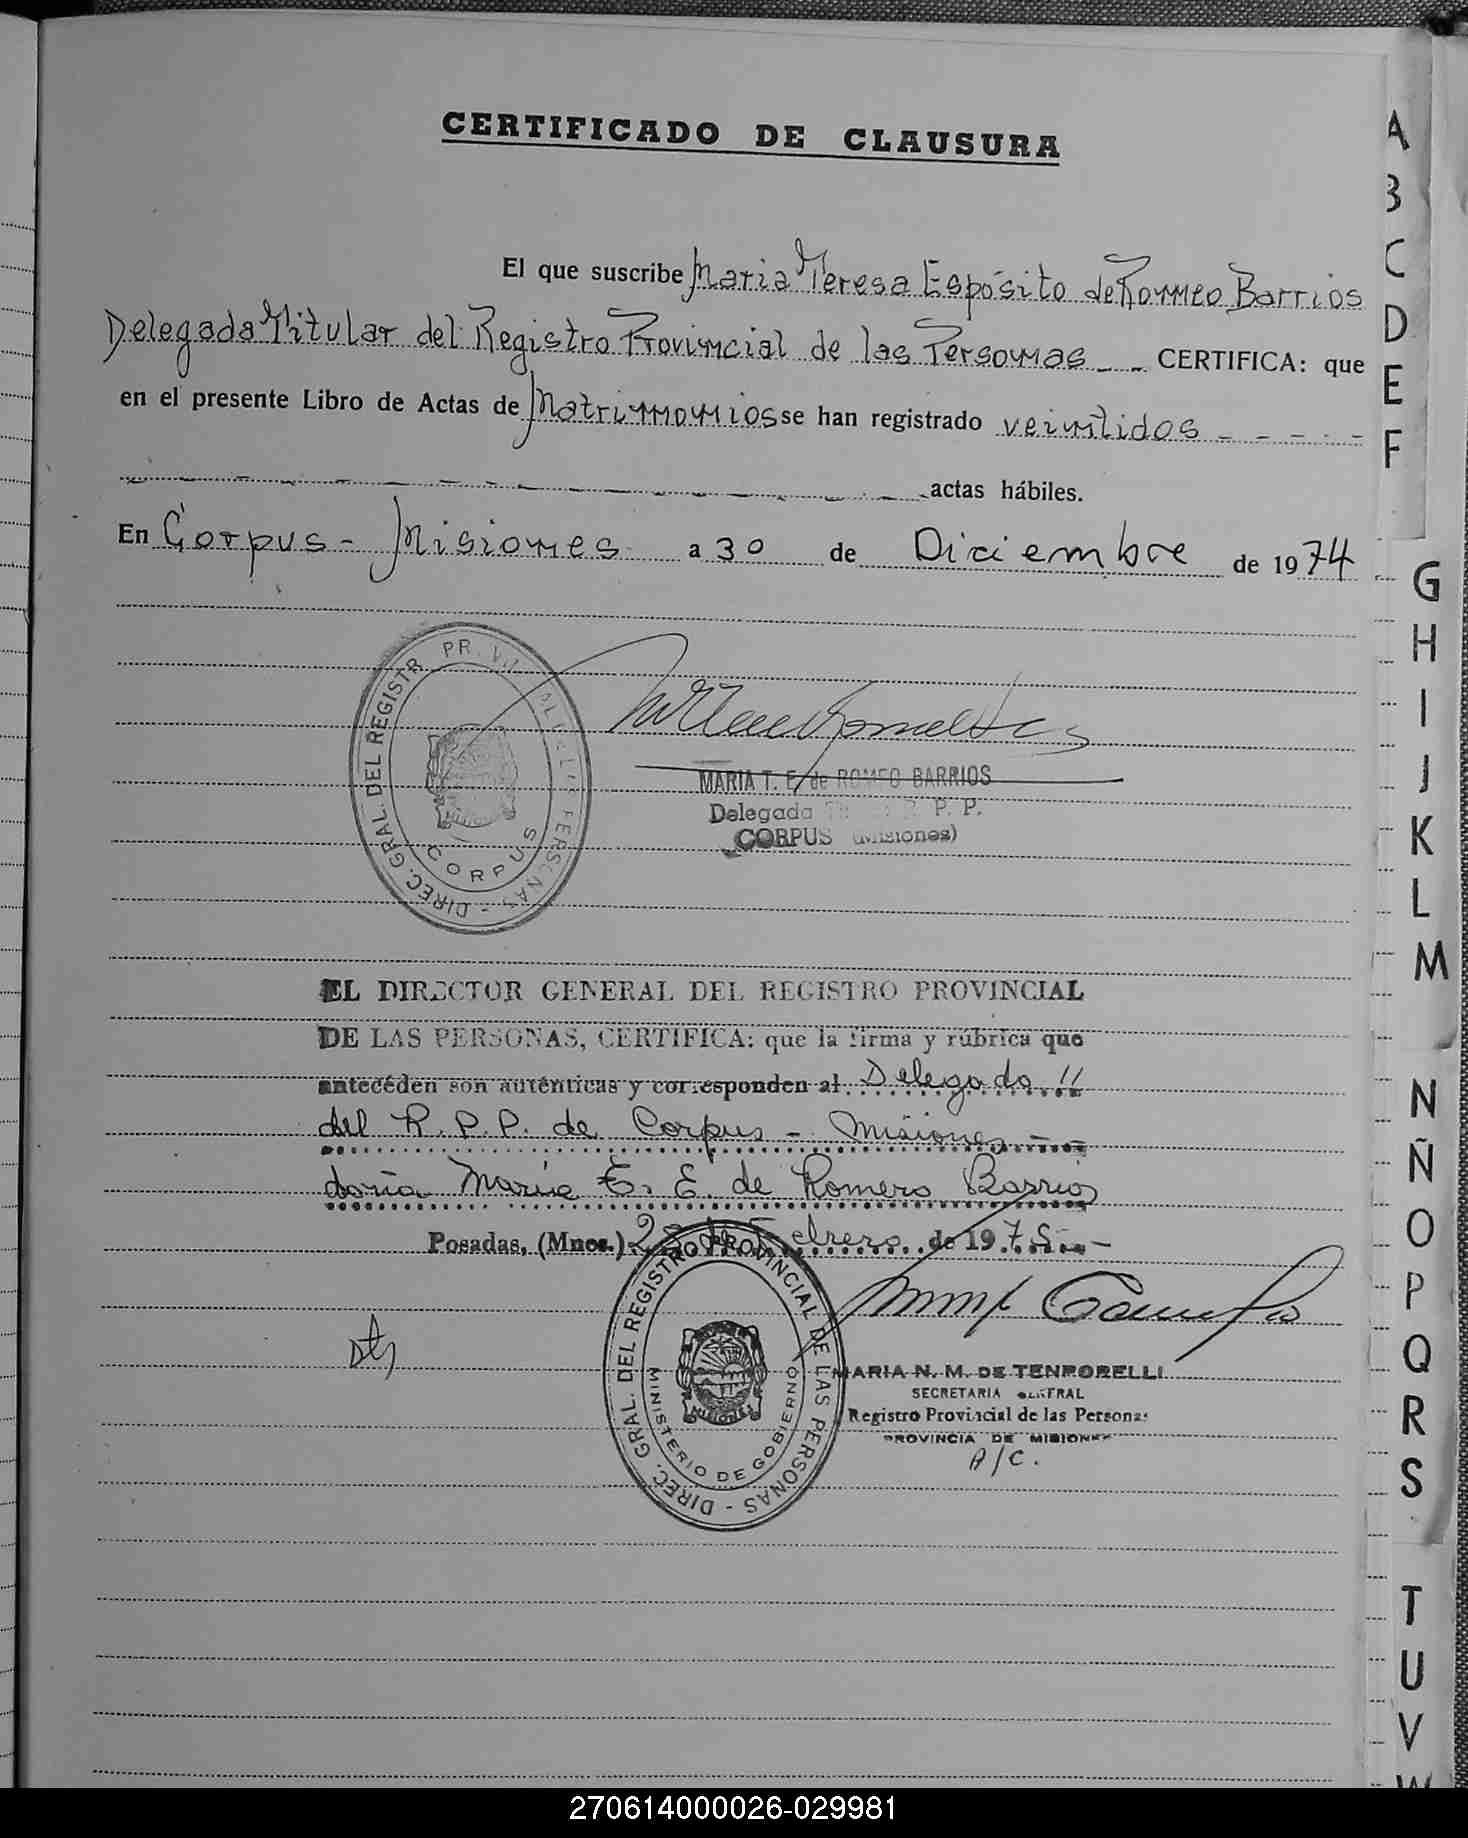 CERTIFICADO DE CLAUSURA
El que suscribe Maria Teresa Espósito de Romeo Barrios
Delegada Titular del Registro Provincial de las Personas _ _ CERTIFICA: que
en el presente Libro de Actas de Matrimonios se han registrado veintidos - - - - -
actas hábiles.
En Corpus - Misiones a 30 de Diciembre de 1974
DIREC. GRAL. DEL REGISTR PERSONAS -
CORPUS
MARIA T. E. de ROMEO BARRIOS
Delegada P. P.
CORPUS (Misiones)
EL DIRECTOR GENERAL DEL REGISTRO PROVINCIAL
DE LAS PERSONAS, CERTIFICA: que la firma y rúbrica que
antecéden son auténticas y corresponden al Delegado !!
del R.P.P. de Corpus - Misiones - -
doña Maria E. de Romero Barrios
Posadas, (Mnes.) Febrero de 1975 -
DIREC. GRAL. DEL REGISTRO PROVINCIAL DE LAS PERSONAS -
MINISTERIO DE GOBIERNO
MISIONES
MARIA N. M. DE TENPORELLI
SECRETARIA GENERAL
Registro Provincial de las Personas
PROVINCIA DE MISIONES
A/C.
A
B
C
D
E
F
G
H
I
J
K
L
M
N
Ñ
O
P
Q
R
S
T
U
V
W
270614000026-029981